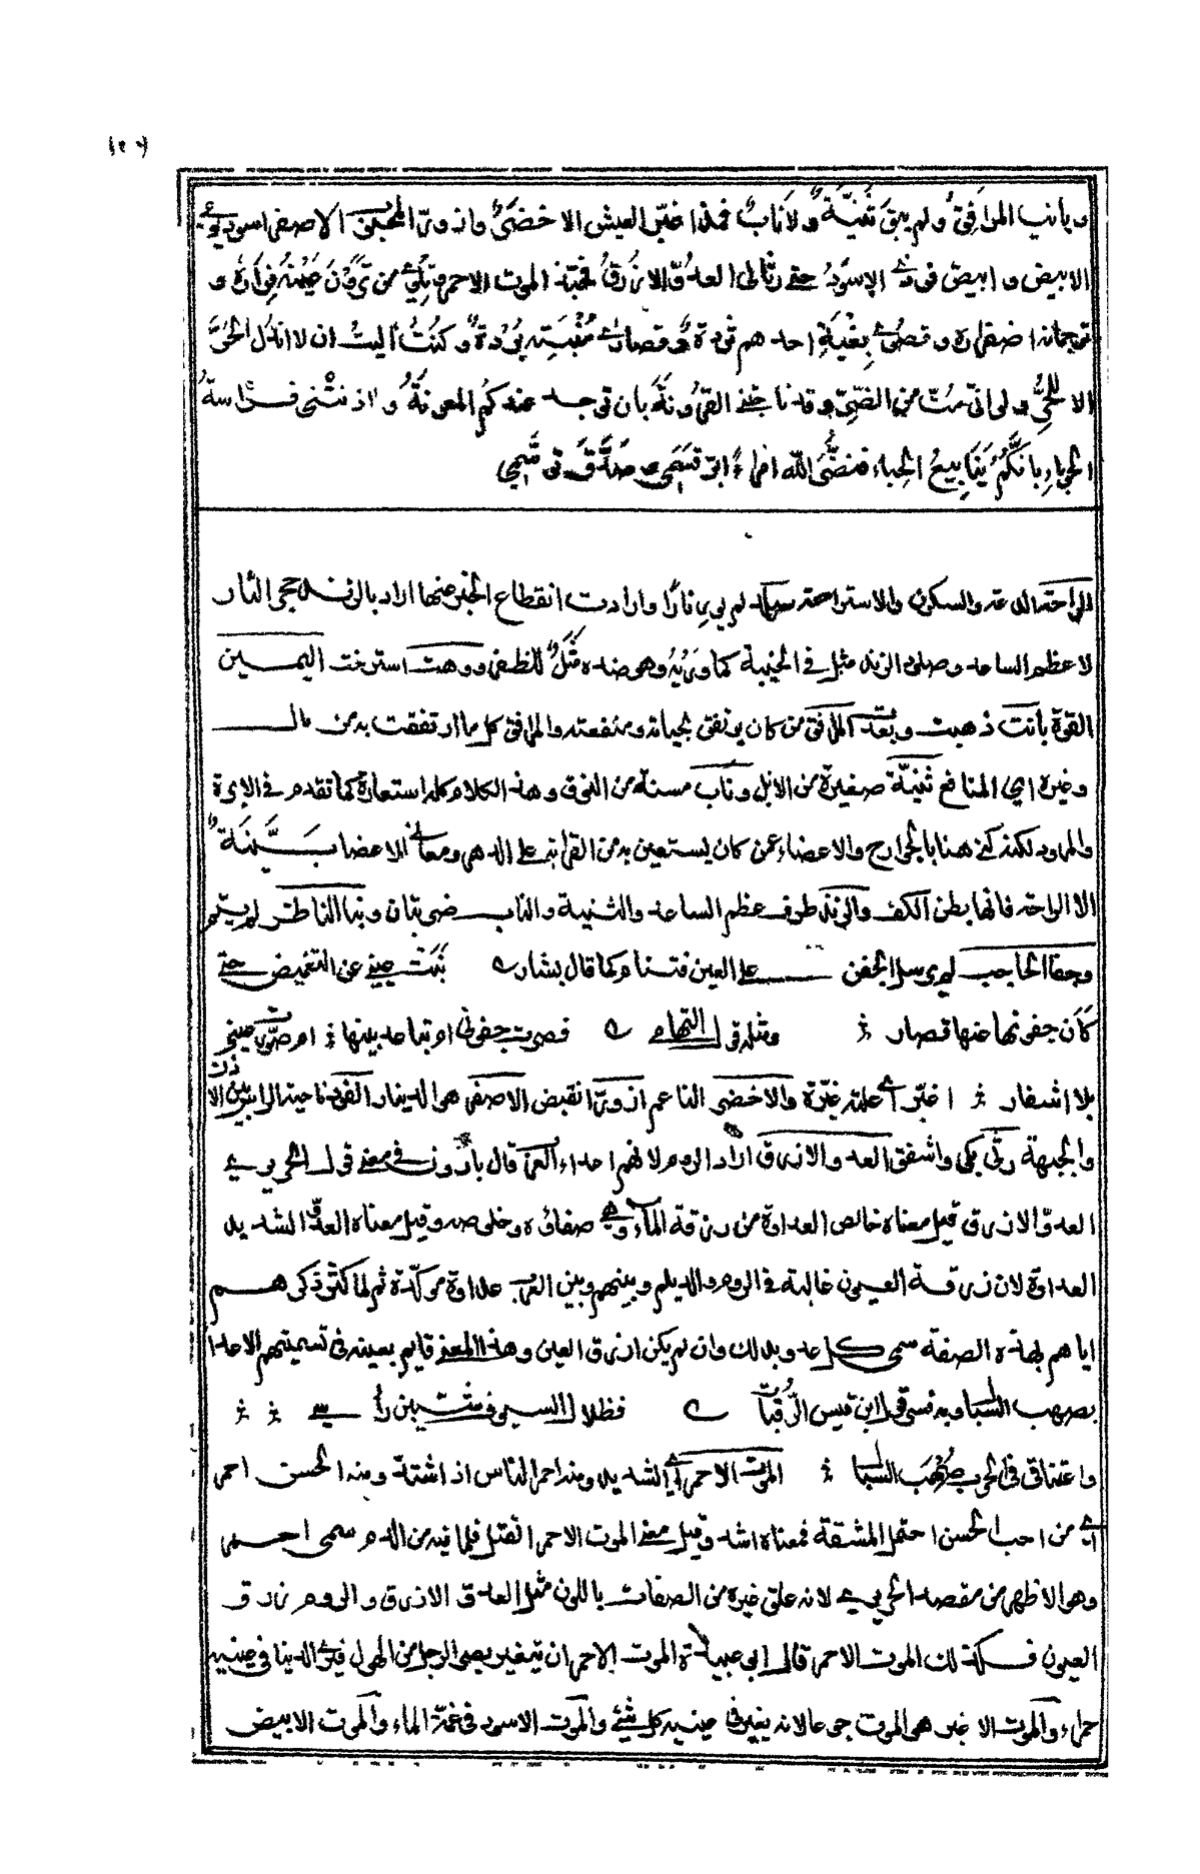 وبانت المرافق ولم يبق ثنية ولا ناب فمذ اغبر العيش الاخضر وازور المحبوب الاصفر اسود يومي
الابيض وابيض فودي الاسود حتى رثى لي العدو الازرق فحبذا الموت الاحمر وتلوي من ترون عينه فراره و
ترجمانه اصفراره وقصوى بغية احدهم ثردة وقصارى امنيته بردة وكنت آليت ان لا ابذل الحر
الا للحر ولو اني مت من الضر وقد ناجتني القرونة بان توجد عندكم المعونة واذنتني فراسة
الحوباء بانكم ينابيع الحباء فنضر الله امرا ابر قسمي وصدق توسمي
الراحة الدعة والسكون والاستراحة صلد لم يور نارا وارادت انقطاع الخير عنها اراد بالزند حجر النار
لا عظم الساعد وصلود الزند مثل في الخيبة كما وريه وهو ضده مثل للظفر ووهت استرخت اليمين
القوة بانت ذهبت وبعد المرافق من كان يرتفق بجاهه ومنفعته والمرافق كل ما ارتفقت به من مال
وغيره اي المنافع ثنية صغيرة من الابل وناب مسنة من النوق وهذا الكلام كله استعارة كما تقدم في الابرة
والمرود لكنه كنى هنا بالجوارح والاعضاء عمن كان يستعين به من القرابة على الدهر ومعاني الاعضاء بينة
الا الراحة فانها بطن الكف والزند طرف عظم الساعد والثنية والناب ضربتان ونبا الناظر لم يتم
وجفا الحاجب لم يرسل الجفن على العين فتنام كما قال بشار نبت عيني عن التغميض حتى
كأن جفونها عنها قصار ومثله قول التهامي قصرت جفوني ام تباعد بينها ام صورت عيني
بلا اشفار اغبر اي علته غبرة والاخضر الناعم ازور انقبض الاصفر هو الدينار الفود ناحية الراس بين الاذن
والجبهة رثى بكى واشفق العدو الازرق اراد الروم لانهم اعداء العرب قال في معنى قول الحريري
العدو الازرق قيل معناه خالص العداوة من زرقة الماء وهي صفاؤه وخلوصه وقيل معناه العدو الشديد
العداوة لان زرقة العيون غالبة في الروم والديلم وبينهم وبين العرب عداوة مؤكدة ثم لما كثر ذكرهم
اياهم بهذه الصفة سمي كل عدو بذلك وان لم يكن ازرق العين وهذا المعنى قايم بعينه في تسميتهم الاعداء
بصهب السبال وبه فسر قول ابن قيس الرقيات فظلال السيوف شيبن راسي
واعتناقي في الحرب صهب السبال الموت الاحمر اي الشديد ومنه احمر الناس اذا اشتد ومنه الحسن احمر
اي من احب الحسن احتمل المشقة فمعناه اشد وقيل معنى الموت الاحمر القتل فلما فيه من الدم سمي احمر
وهو الاظهر من مقصد الحريري لانه علق غيره من الصفات باللون مثل العدو الازرق والروم زرق
العيون فكذلك الموت الاحمر قال ابو عبيدة الموت الاحمر ان يتغير بصر الرجل من الهول فيرى الدنيا في عينيه
حمراء والموت الاغبر هو الموت جوعا لانه يغير في عينيه كل شيء والموت الاسود في غمة الماء والموت الابيض